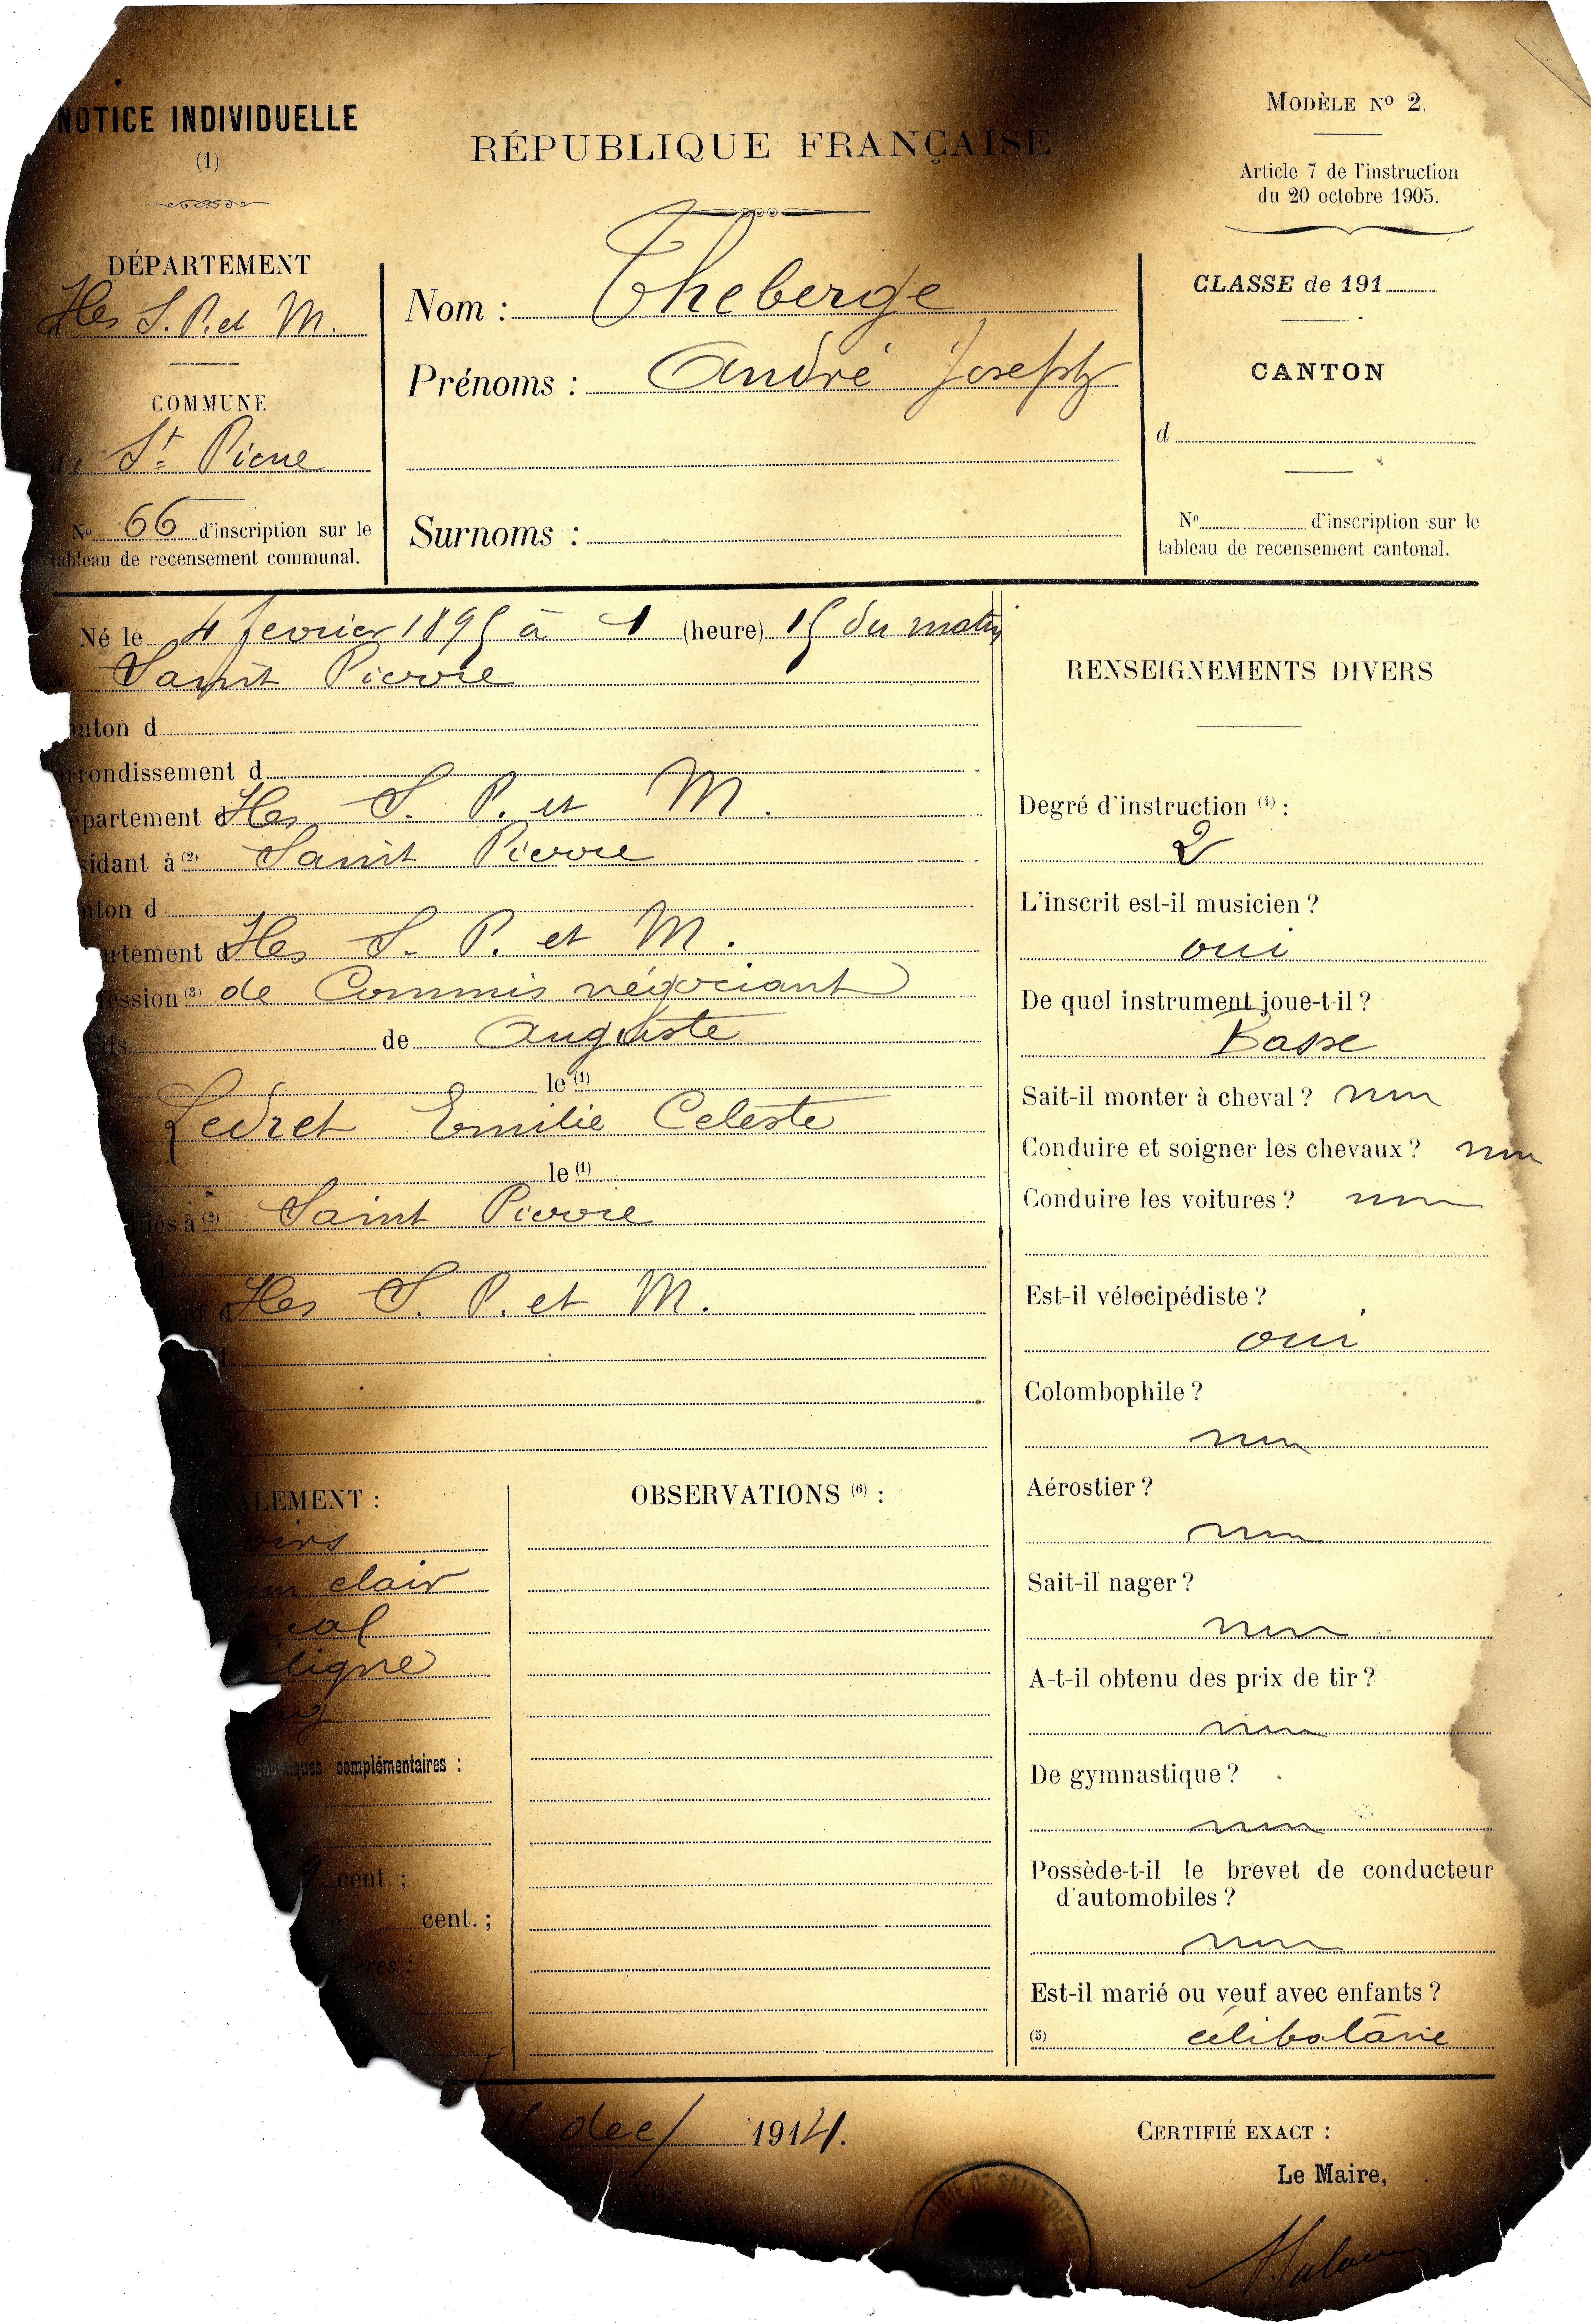 NOTICE INDIVIDUELLE
(1)
RÉPUBLIQUE FRANÇAISE
MODÈLE Nº 2.
Article 7 de l'instruction
du 20 octobre 1905.
DÉPARTEMENT
Iles S. P. et M.
COMMUNE
de St Pierre
Nº 66 d'inscription sur le
tableau de recensement communal.
Nom : Theberge
Prénoms : André Joseph
Surnoms :
CLASSE de 191
CANTON
d
Nº d'inscription sur le
tableau de recensement cantonal.
Né le 4 fevrier 1895 à 1 (heure) 15 du matin
Saint Pierre
anton d
rrondissement d
partement d Iles S. P. et M.
sidant à (2) Saint Pierre
nton d
artement d Iles S. P. et M.
fession (3) de Commis négociant
fils de Auguste
le (1)
Ledret Emilie Celeste
le (1)
liés à (2) Saint Pierre
ent d Iles S. P. et M.
ALEMENT :
oirs
clair
ical
ligne
niques complémentaires :
9 cent. ;
cent. ;
OBSERVATIONS (6) :
RENSEIGNEMENTS DIVERS
Degré d'instruction (4) :
2
L'inscrit est-il musicien ?
oui
De quel instrument joue-t-il ?
Basse
Sait-il monter à cheval ? non
Conduire et soigner les chevaux ? non
Conduire les voitures ? non
Est-il vélocipédiste ?
oui
Colombophile ?
non
Aérostier ?
non
Sait-il nager ?
non
A-t-il obtenu des prix de tir ?
non
De gymnastique ?
non
Possède-t-il le brevet de conducteur
d'automobiles ?
non
Est-il marié ou veuf avec enfants ?
(5) célibataire
dec/ 1914.
CERTIFIÉ EXACT :
Le Maire,